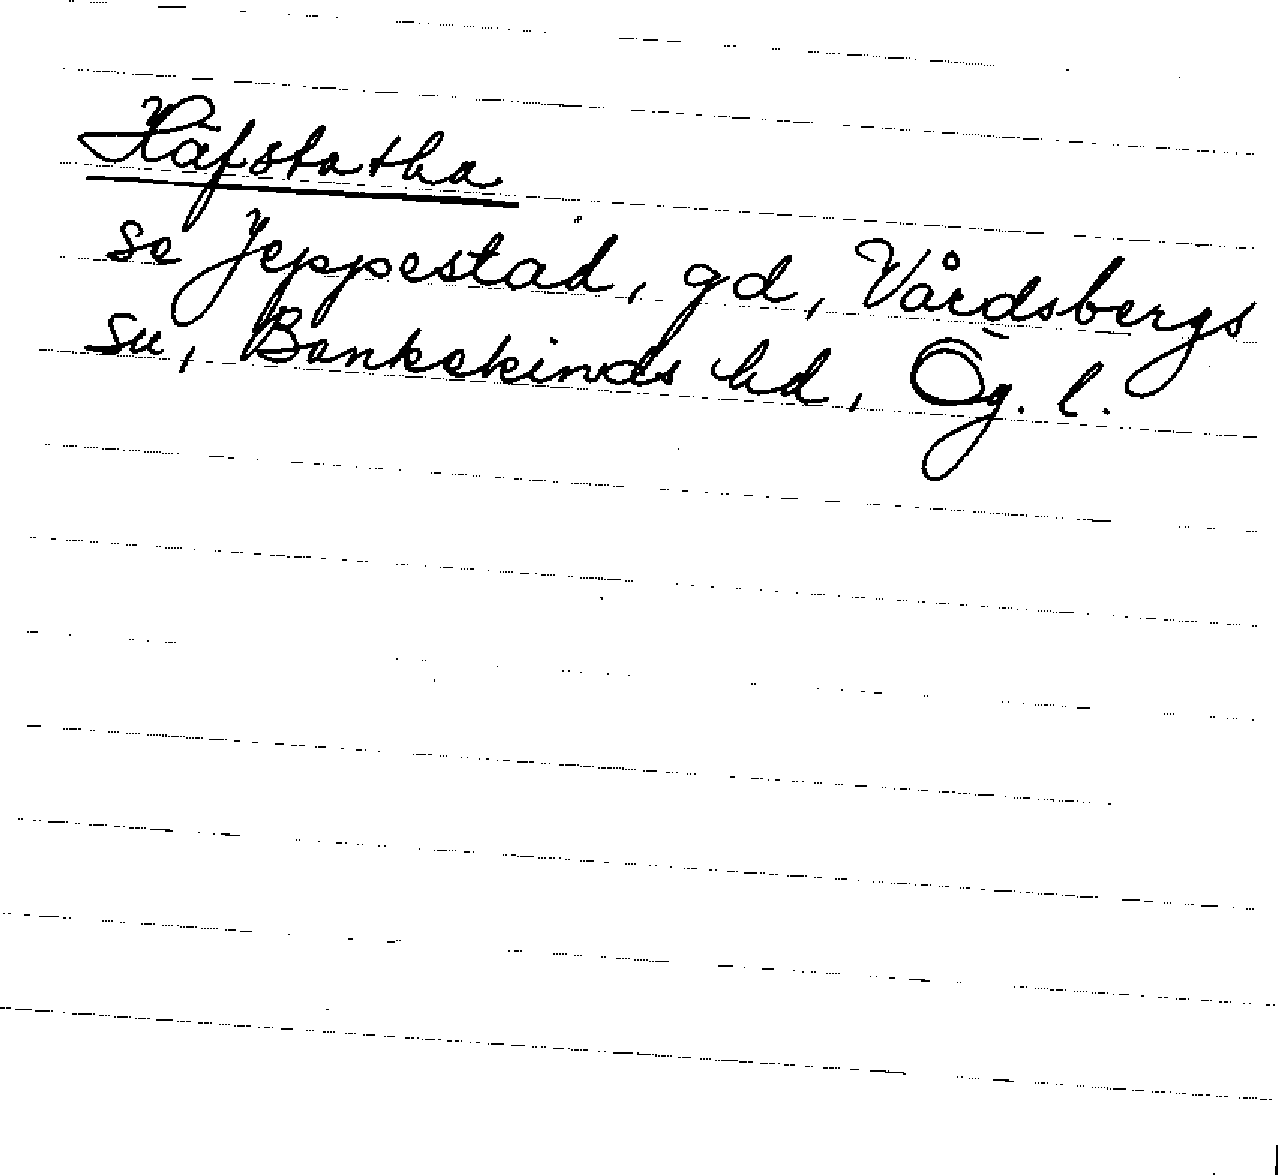 Häfstatha
se Jeppestad, gd, Vårdsbergs
su, Bankekinds hd, Ög. l.